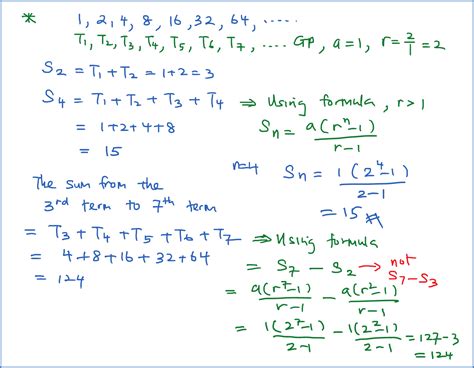 * 1, 2, 4, 8, 16, 32, 64, ....
T₁, T₂, T₃, T₄, T₅, T₆, T₇, .... GP, a=1, r=2/1=2
S₂ = T₁ + T₂ = 1+2 = 3
S₄ = T₁ + T₂ + T₃ + T₄
= 1+2+4+8
= 15
⇒ Using formula, r>1
Sn = a(rⁿ-1)/r-1
n=4 Sn = 1(2⁴-1)/2-1
= 15 #
The sum from the
3rd term to 7th term
= T₃ + T₄ + T₅ + T₆ + T₇
= 4+8+16+32+64
= 124
⇒ Using formula
= S₇ - S₂ → not S₇-S₃
= a(r⁷-1)/r-1 - a(r²-1)/r-1
= 1(2⁷-1)/2-1 - 1(2²-1)/2-1 = 127-3
= 124